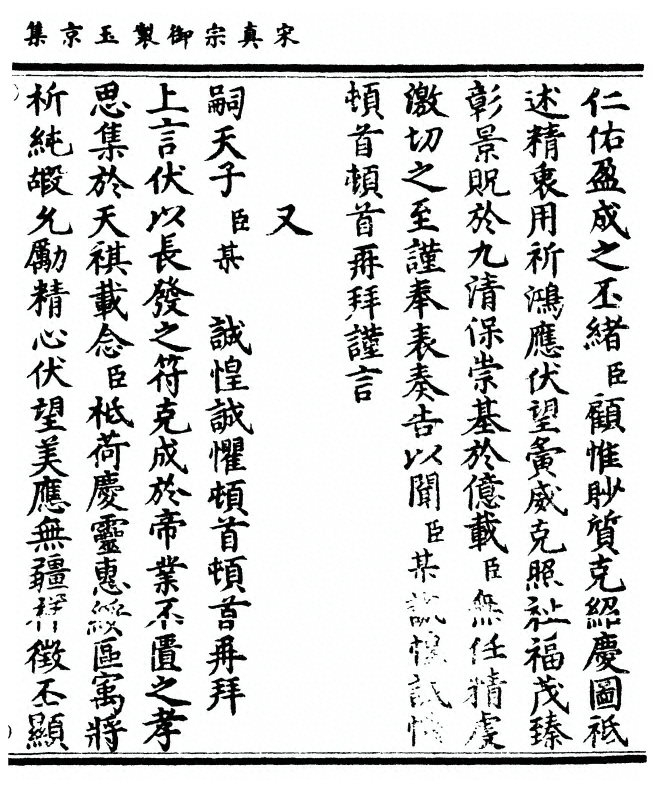 宋真宗御製玉京集
仁佑盈成之丕緒臣顧惟眇質克紹慶圖祗
述精衷用祈鴻應伏望賁威克照祉福茂臻
彰景貺於九清保崇基於億載臣無任精虔
激切之至謹奉表奏告以聞臣某誠惶誠懼
頓首頓首再拜謹言
又
嗣天子臣某 誠惶誠懼頓首頓首再拜
上言伏以長發之符克成於帝業不匱之孝
思集於天祺載念臣祗荷慶靈惠綏區㝢將
祈純嘏允勵精心伏望美應無疆祥徵丕顯